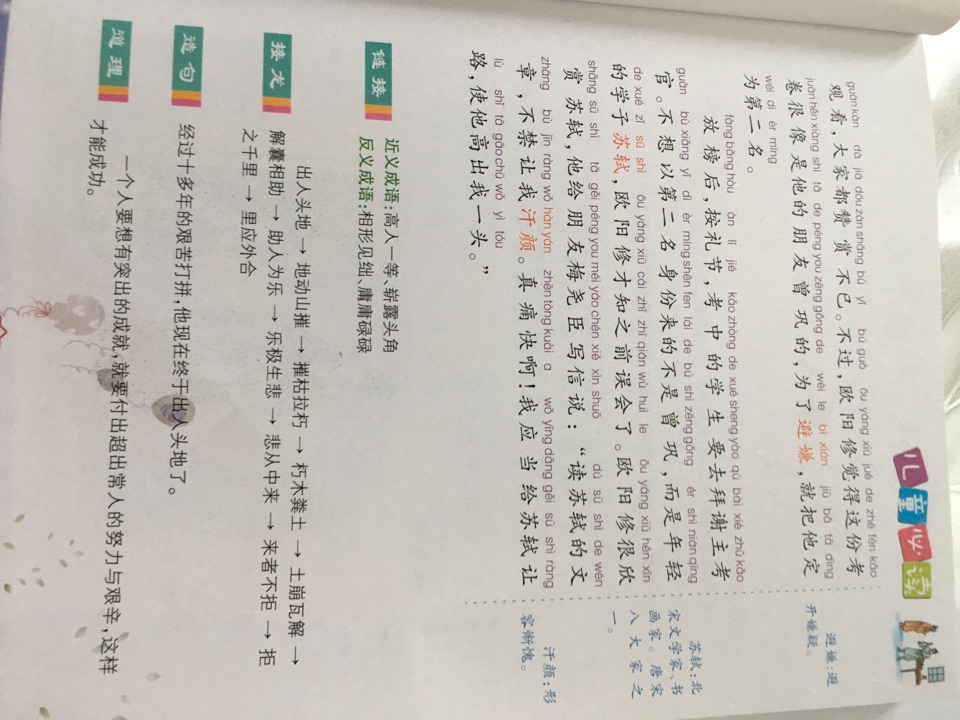 儿童必读
guān kàn dà jiā dōu zàn shǎng bù yǐ bú guò ōu yáng xiū jué de zhè fèn kǎo
观看，大家都赞赏不已。不过，欧阳修觉得这份考
juàn hěn xiàng shì tā de péng you zēng gǒng de wèi le bì xián jiù bǎ tā dìng
卷很像是他的朋友曾巩的，为了避嫌，就把他定
wéi dì èr míng
为第二名。
fàng bǎng hòu àn lǐ jié kǎo zhòng de xué sheng yào qù bài xiè zhǔ kǎo
放榜后，按礼节，考中的学生要去拜谢主考
guān bù xiǎng yǐ dì èr míng shēn fen lái de bú shì zēng gǒng ér shì nián qīng
官。不想以第二名身份来的不是曾巩，而是年轻
de xué zǐ sū shì ōu yáng xiū cái zhī zhī qián wù huì le ōu yáng xiū hěn xīn
的学子苏轼，欧阳修才知之前误会了。欧阳修很欣
shǎng sū shì tā gěi péng you méi yáo chén xiě xìn shuō dú sū shì de wén
赏苏轼，他给朋友梅尧臣写信说：“读苏轼的文
zhāng bù jīn ràng wǒ hàn yán zhēn tòng kuài a wǒ yīng dāng gěi sū shì ràng
章，不禁让我汗颜。真痛快啊！我应当给苏轼让
lù shǐ tā gāo chū wǒ yì tóu
路，使他高出我一头。”
避嫌：避
开嫌疑。
苏轼：北
宋文学家、书
画家。唐宋
八大家之
一。
汗颜：形
容惭愧。
链接
近义成语：高人一等、崭露头角
反义成语：相形见绌、庸庸碌碌
接龙
出人头地 → 地动山摧 → 摧枯拉朽 → 朽木粪土 → 土崩瓦解 →
解囊相助 → 助人为乐 → 乐极生悲 → 悲从中来 → 来者不拒 → 拒
之千里 → 里应外合
造句
经过十多年的艰苦打拼，他现在终于出人头地了。
道理
一个人要想有突出的成就，就要付出超出常人的努力与艰辛，这样
才能成功。